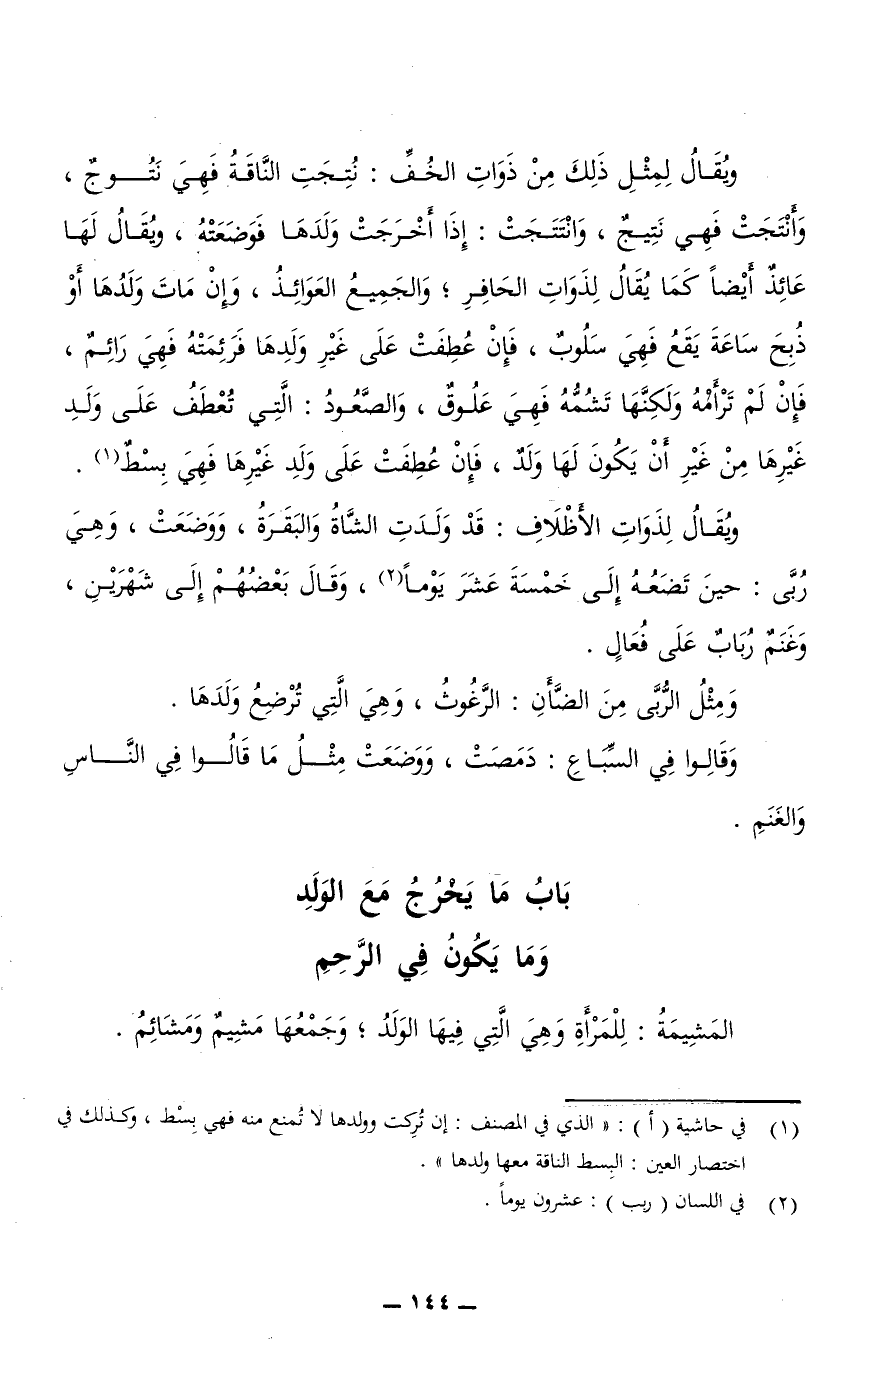 ويُقَالُ لِمِثْلِ ذَلِكَ مِنْ ذَوَاتِ الخُفِّ : نُتِجَتِ النَّاقَةُ فَهِيَ نَتُوجٌ ،
وَأَنْتَجَتْ فَهِي نَتِيجٌ ، وَانْتَتَجَتْ : إِذَا أَخْرَجَتْ وَلَدَهَا فَوَضَعَتْهُ ، ويُقَالُ لَهَا
عَائِذٌ أَيْضاً كَمَا يُقَالُ لِذَوَاتِ الحَافِرِ ؛ وَالجَمِيعُ العَوَائِذُ ، وَإِنْ مَاتَ وَلَدُهَا أَوْ
ذُبِحَ سَاعَةَ يَقَعُ فَهِيَ سَلُوبٌ ، فَإِنْ عُطِفَتْ عَلَى غَيْرِ وَلَدِهَا فَرَئِمَتْهُ فَهِيَ رَائِمٌ ،
فَإِنْ لَمْ تَرْأَمْهُ وَلَكِنَّهَا تَشُمُّهُ فَهِيَ عَلُوقٌ ، وَالصَّعُودُ : الَّتِي تُعْطَفُ عَلَى وَلَدِ
غَيْرِهَا مِنْ غَيْرِ أَنْ يَكُونَ لَهَا وَلَدٌ ، فَإِنْ عُطِفَتْ عَلَى وَلَدِ غَيْرِهَا فَهِيَ بِسْطٌ(١) .
ويُقَالُ لِذَوَاتِ الأَظْلَافِ : قَدْ وَلَدَتِ الشَّاةُ وَالبَقَرَةُ ، وَوَضَعَتْ ، وَهِيَ
رُبَّى : حينَ تَضَعُهُ إِلَى خَمْسَةَ عَشَرَ يَوْماً(٢) ، وَقَالَ بَعْضُهُمْ إِلَى شَهْرَيْنِ ،
وَغَنَمٌ رُبَابٌ عَلَى فُعَالٍ .
وَمِثْلُ الرُّبَّى مِنَ الضَّأْنِ : الرَّغُوثُ ، وَهِيَ الَّتِي تُرْضِعُ وَلَدَهَا .
وَقَالِوا فِي السِّبَاعِ : دَمَصَتْ ، وَوَضَعَتْ مِثْلُ مَا قَالُوا فِي النَّاسِ
وَالغَنَمِ .
بَابُ مَا يَخْرُجُ مَعَ الوَلَدِ
وَمَا يَكُونُ فِي الرَّحِمِ
المَشِيمَةُ : لِلْمَرْأَةِ وَهِيَ الَّتِي فِيهَا الوَلَدُ ؛ وَجَمْعُهَا مَشِيمٌ وَمَشَائِمُ .
(١) في حاشية ( أ ) : « الذي في المصنف : إن تُرِكت وولدها لا تُمنع منه فهي بِسْط ، وكذلك في
اختصار العين : البِسط الناقة معها ولدها » .
(٢) في اللسان ( ربب ) : عشرون يوماً .
– ١٤٤ –